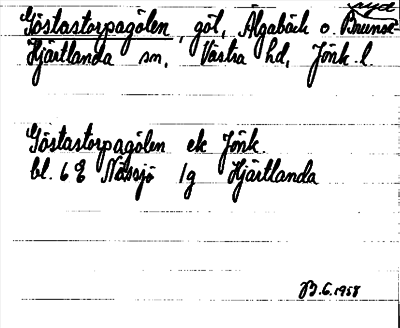 Göstastorpagölen, göl, Älgabäck o. Brunse-
ryd
Hjärtlanda sn, Västra hd, Jönk. l.
Göstastorpagölen ek Jönk.
bl. 6 E Nässjö 1g Hjärtlanda
B.G. 1958